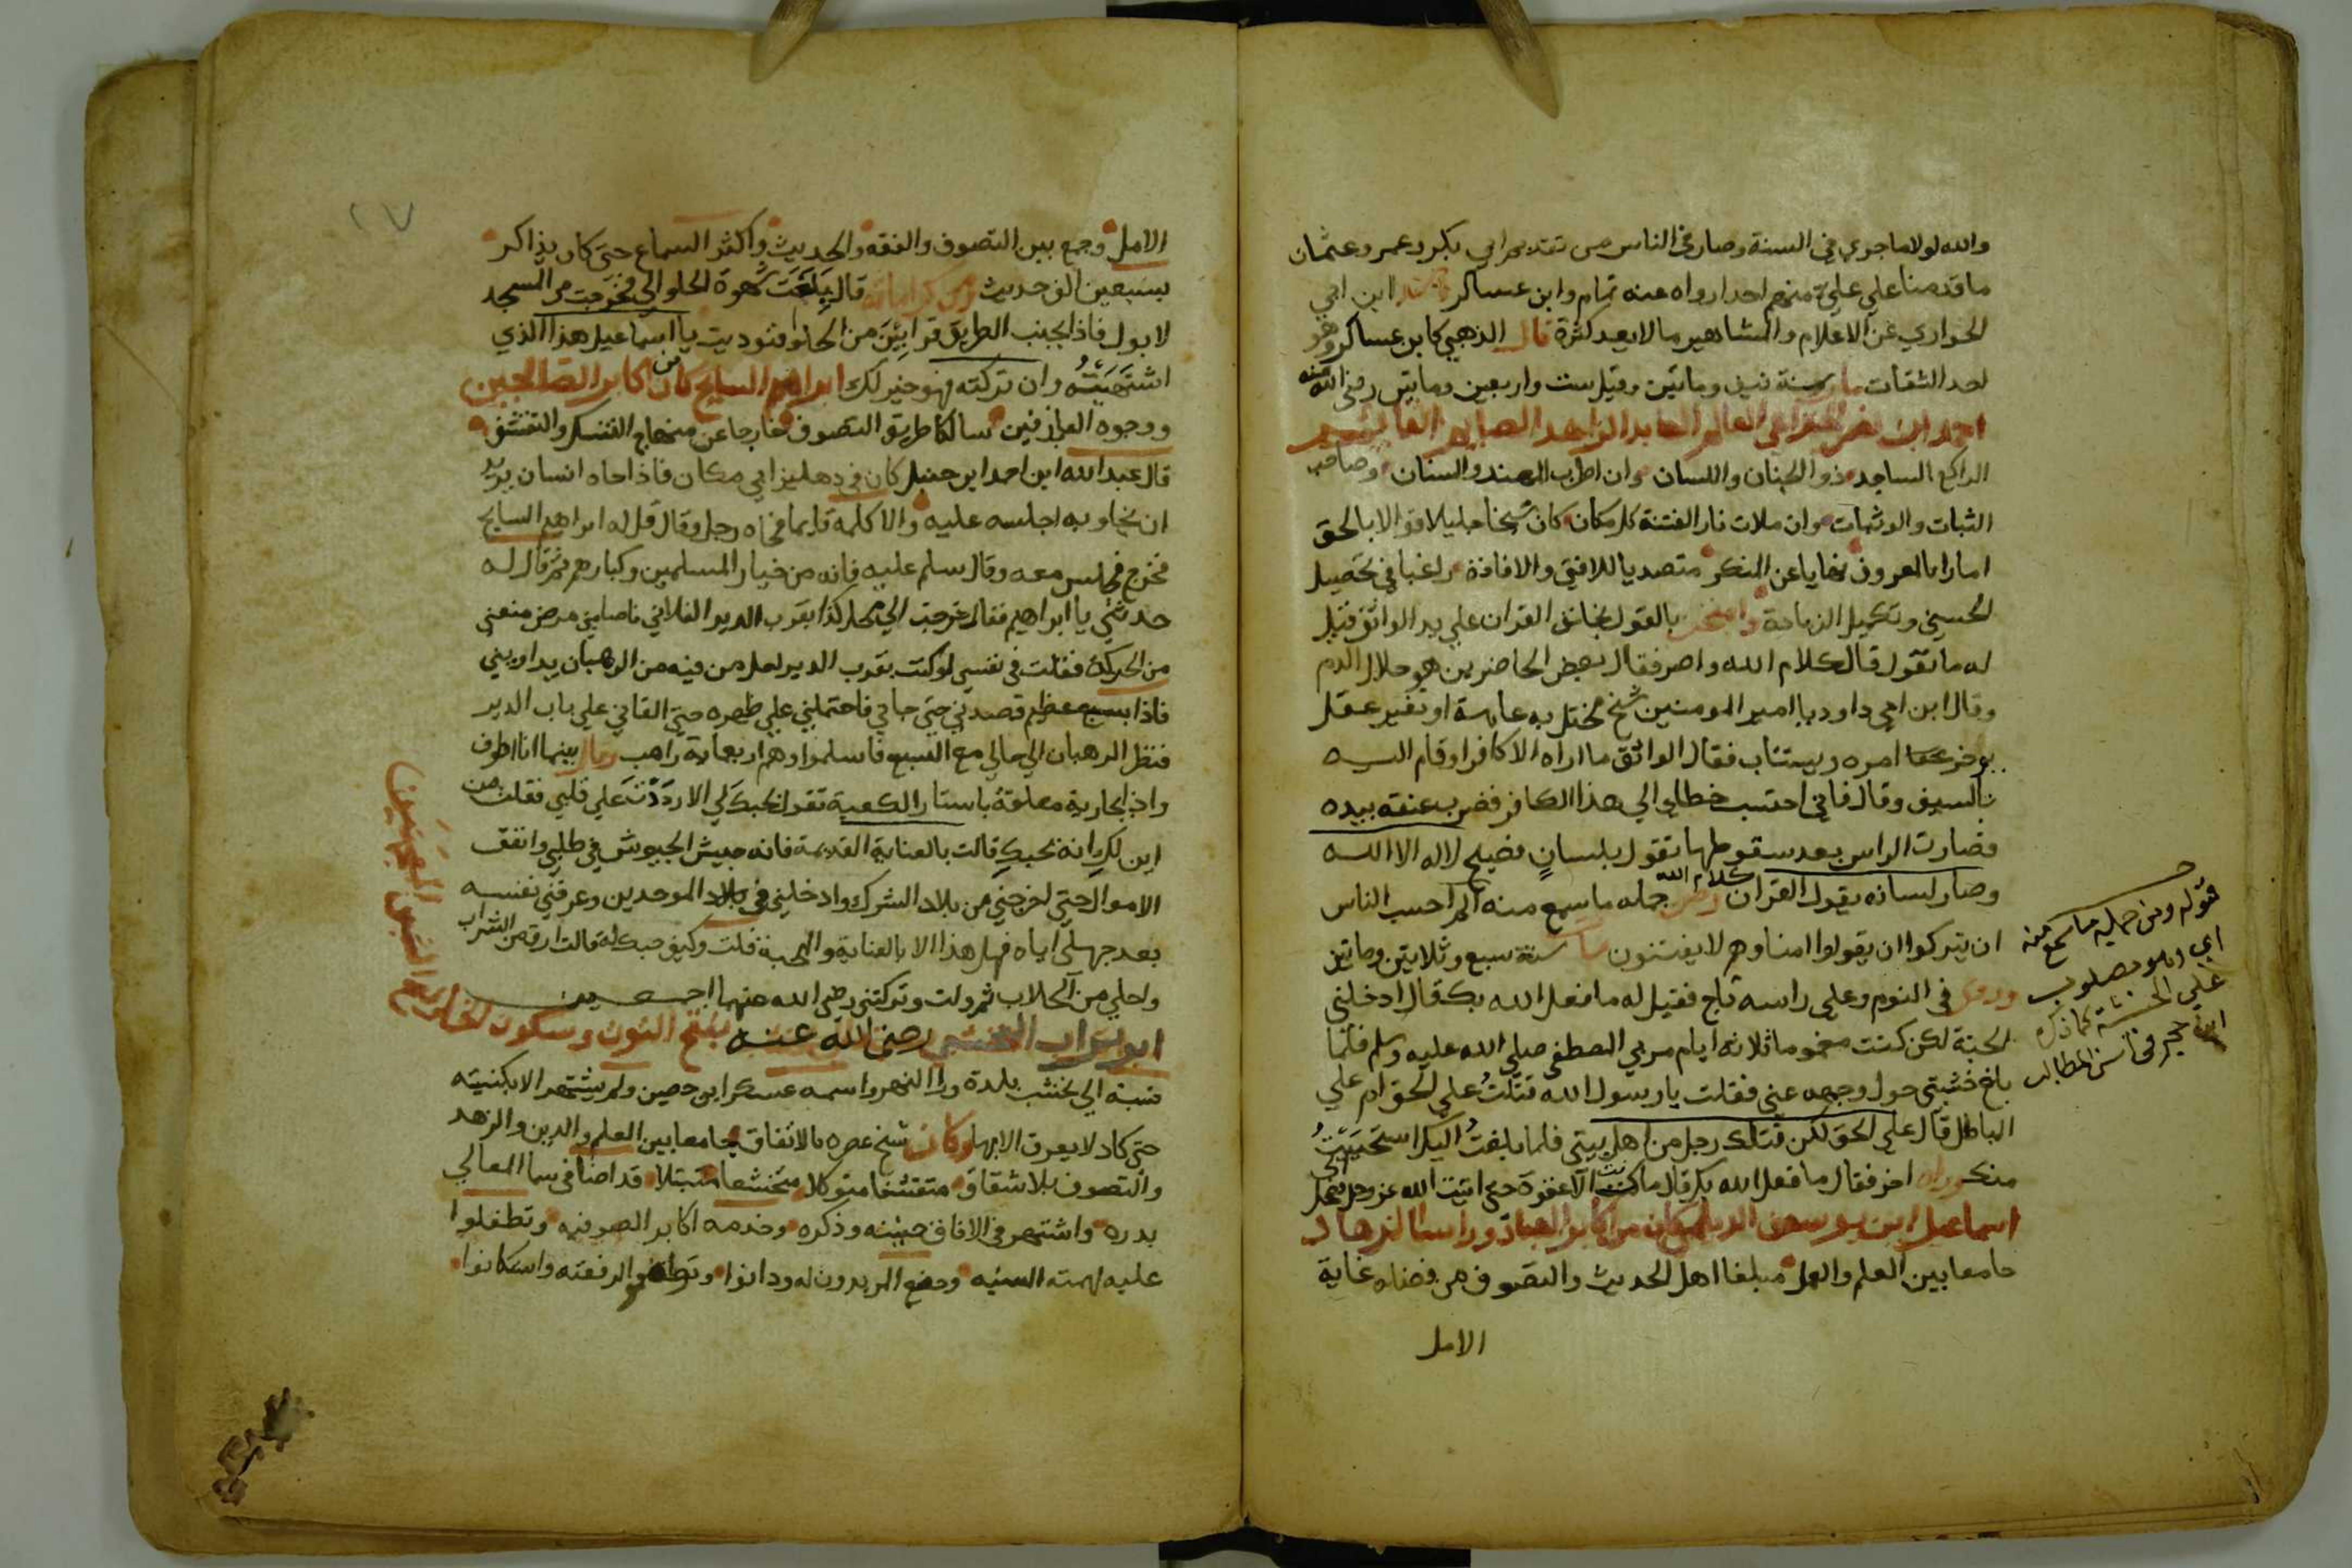 والله لولا ما جري في السنة وصار في الناس من تقديم ابي بكر وعمر وعثمان
ما قدمنا علي علي منهم احدا رواه عنه تمام وابن عساكر ابن ابي
الحواري عن الاعلام والمشاهير ما لا يعد كثرة قال الذهبي كابن عساكر وهو
احد الثقات مات سنة نيف وماتين وقيل ست واربعين وماتين رضي الله عنه
احمد ابن نصر الخزاعي العالم العابد الزاهد الصابر القايم
الراكع الساجد ذو الجنان واللسان وان اطرب المهند والسنان وصاحب
الثبات والوثبات وان ملات نار الفتنة كل مكان كان شيخا جليلا قوالا بالحق
امارا بالمعروف نهايا عن المنكر متصديا للافتي والافادة راغبا في تحصيل
الحسني وتكميل الزيادة وامتحن بالقول بخلق القران علي يد الواثق فقيل
له ما تقول قال كلام الله واصر فقال بعض الحاضرين هو حلال الدم
وقال ابن ابي داود يا امير المومنين شيخ مختل به عاهة او تغير عقل
يوخر امره ويستتاب فقال الواثق ما اراه الا كافرا وقام اليه
بالسيف وقال فاني احتسب خطاي الي هذا الكافر فضرب عنقه بيده
فصارت الراس بعد سقوطها تقول بلسان فصيح لا اله الا الله
وصار لسانه يقول القران كلام الله ومن جمله ما سمع منه الم احسب الناس
ان يتركوا ان يقولوا امنا وهم لا يفتنون مات سنة سبع وثلاثين وماتين
وروي في النوم وعلي راسه تاج فقيل له ما فعل الله بك قال ادخلني
الجنة لكن كنت مغموما ثلاثة ايام مر بي المصطفي صلي الله عليه وسلم فلما
بلغ خشبتي حول وجهه عني فقلت يا رسول الله قتلت علي الحق ام علي
الباطل قال علي الحق لكن قتلك رجل من اهل بيتي فلما بلغت اليك استحييت
منك وراه اخر فقال ما فعل الله بك قال ما كنت الا غفوة حتي اتيت الله عز وجل فضحك الي
اسماعيل ابن يوسف الديلمي كان من اكابر العباد وراسا لزهاد
جامعا بين العلم والعمل مبلغا اهل الحديث والتصوف من فضله غاية
الامل
قوله ومن جمله ما سمع منه
اي وهو مصلوب
علي الخشبة كما ذكره
ابن حجر في المطالب
الامل وجمع بين التصوف والفقه والحديث واكثر السماع حتي كان يذاكر
بسبعين الف حديث ومن كراماته قال بلغت شهوة الحلو الي فخرجت من المسجد
لابول فاذا بجنب الطريق قرابتين من الحلو فنوديت يا اسماعيل هذا الذي
اشتهيته وان تركته فهو خير لك ابراهيم السايح كان من اكابر الصالحين
ووجوه العارفين سالكا طريق التصوف خارجا عن منهاج التنسك والتقشف
قال عبد الله ابن احمد ابن حنبل كان في دهليز ابي مكان فاذا جاه انسان يريد
ان يخلو به اجلسه عليه والا كلمه قايما فجاه رجل وقال قل له ابراهيم السايح
فخرج فجلس معه وقال سلم عليه فانه من خيار المسلمين وكبارهم ثم قال له
حدثني يا ابراهيم فقال خرجت الي محل كذا بقرب الدير الفلاني فاصابني مرض منعني
من الحركة فقلت في نفسي لو كنت بقرب الدير لعل من فيه من الرهبان يداويني
فاذا بسبع عظيم قصدني حتي جاني فاحتملني علي ظهره حتي القاني علي باب الدير
فنظر الرهبان الي حالي مع السبع فاسلموا وهم اربعماية راهب وقال بينما انا اطوف
واذ بجارية معلقة باستار الكعبة تقول بحبك لي الا رددت علي قلبي فقلت من
اين لك انه يحبك قالت بالعناية القديمة فانه جيش الجيوش في طلبي وانفق
الاموال حتي اخرجني من بلاد الشرك وادخلني في بلاد الموحدين وعرفني نفسه
بعد جهلي اياه فهل هذا الا بالعناية والمحبة قلت وكيف حبك له قالت ارق من الشراب
واحلي من الجلاب ثم ولت وتركتني رضي الله عنهما اجمعين
ابو تراب النخشبي رضي الله عنه بفتح النون وسكون الخا
نسبة الي نخشب بلدة ورا النهر واسمه عسكر ابن حصين ولم يشتهر الا بكنيته
حتي كاد لا يعرف الا بها وكان شيخ عصره بالاتفاق جامعا بين العلم والدين والزهد
والتصوف بلا شقاق متقشفا متوكلا متخشعا متبتلا قد اضا في سما المعالي
بدره واشتهر في الافاق صيته وذكره وخدمه اكابر الصوفيه وتطفلوا
عليه لهمته السنيه وخضع المريدون له ودانوا لرفعته واستكانوا